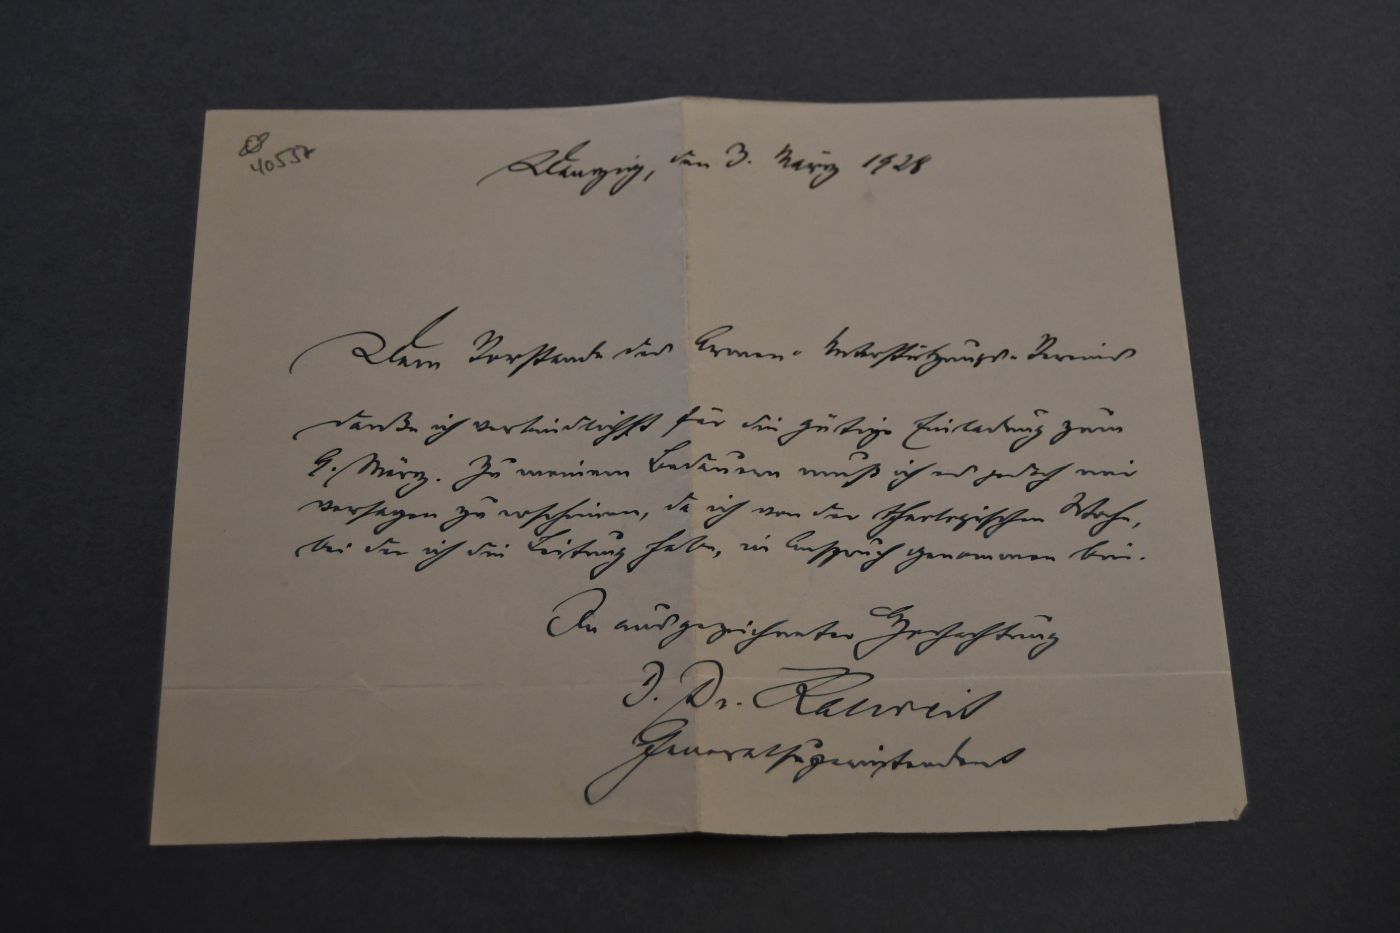 40537
Danzig, den 3. März 1928
Dem Vorstande des Armen-Unterstützungs-Vereins
danke ich verbindlichst für die gütige Einladung zum
9. März. Zu meinem Bedauern muß ich es jedoch mir
versagen zu erscheinen, da ich von der theologischen Woche,
bei der ich die Leitung habe, in Anspruch genommen bin.
In ausgezeichneter Hochachtung
D. Dr. Kalweit
Generalsuperintendent